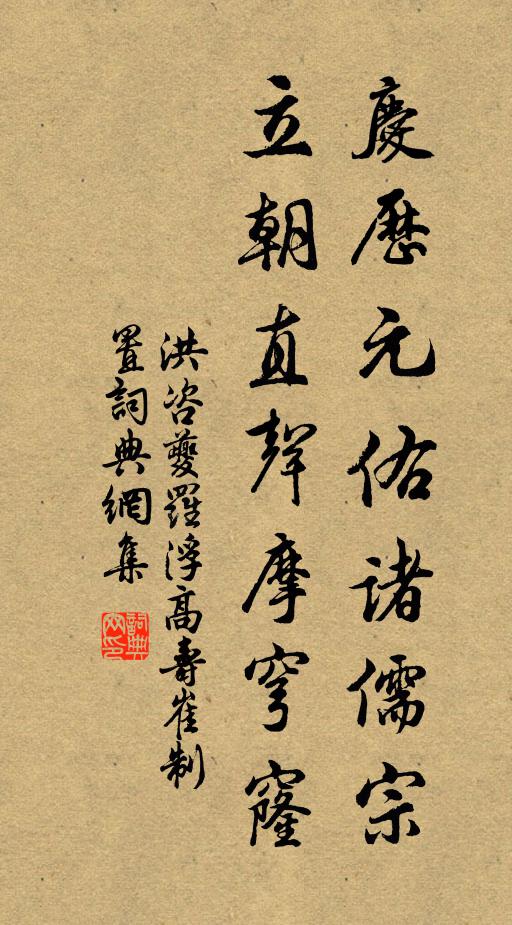 慶歷元佑諸儒宗
立朝直聲摩穹窿
洪咨夔羅浮高壽崔制
置詞典網集
詞典
网印